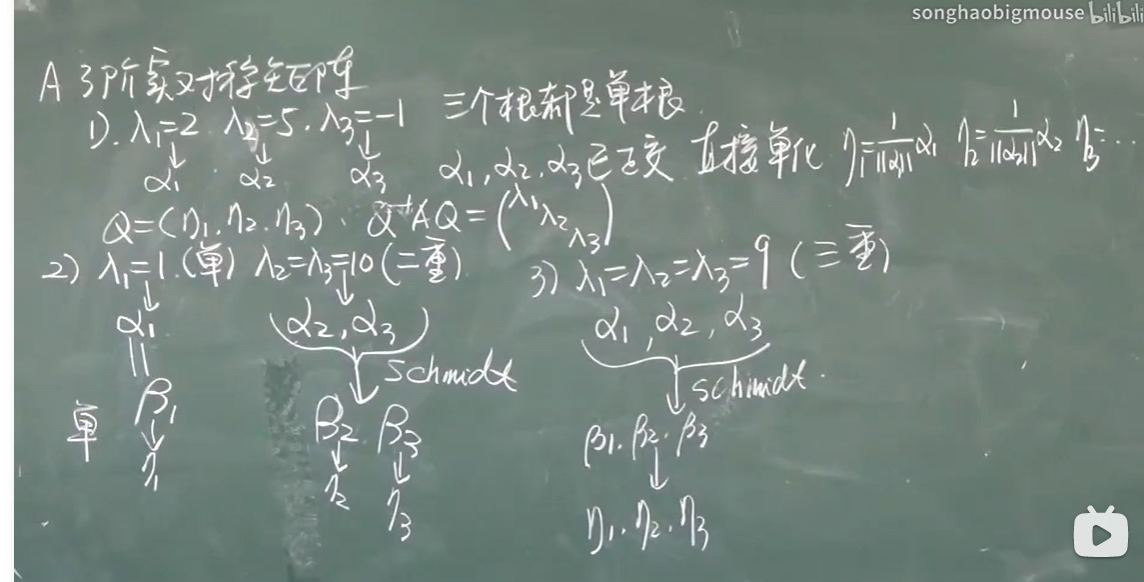 songhaobigmouse bilibili
A 3阶实对称矩阵
1). λ₁=2. λ₂=5. λ₃=-1 三个根都是单根.
α₁ α₂ α₃ α₁, α₂, α₃已正交 直接单化 η₁=1/||α₁|| α₁ η₂=1/||α₂|| α₂ η₃=…
Q=(η₁. η₂. η₃). Q⁻¹AQ=(λ₁ λ₂ λ₃)
2) λ₁=1. (单) λ₂=λ₃=10 (二重).
α₁ (α₂, α₃)
|| schmidt
单 β₁ β₂. β₃
η₁ η₂ η₃
3) λ₁=λ₂=λ₃=9 (三重)
α₁, α₂, α₃
schimidt.
β₁. β₂. β₃
η₁. η₂. η₃